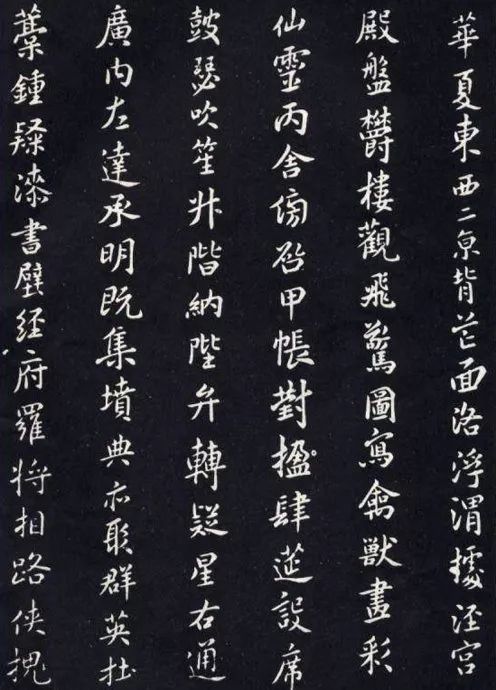 華夏東西二京背芒面洛浮渭據涇宮
殿盤欝樓觀飛驚圖寫禽獸畫彩
仙靈丙舍傍启甲帳對楹肆筵設席
鼓瑟吹笙升階納陛弁轉疑星右通
廣内左達承明既集墳典亦聚群英杜
藁鍾隸漆書壁經府羅將相路俠槐